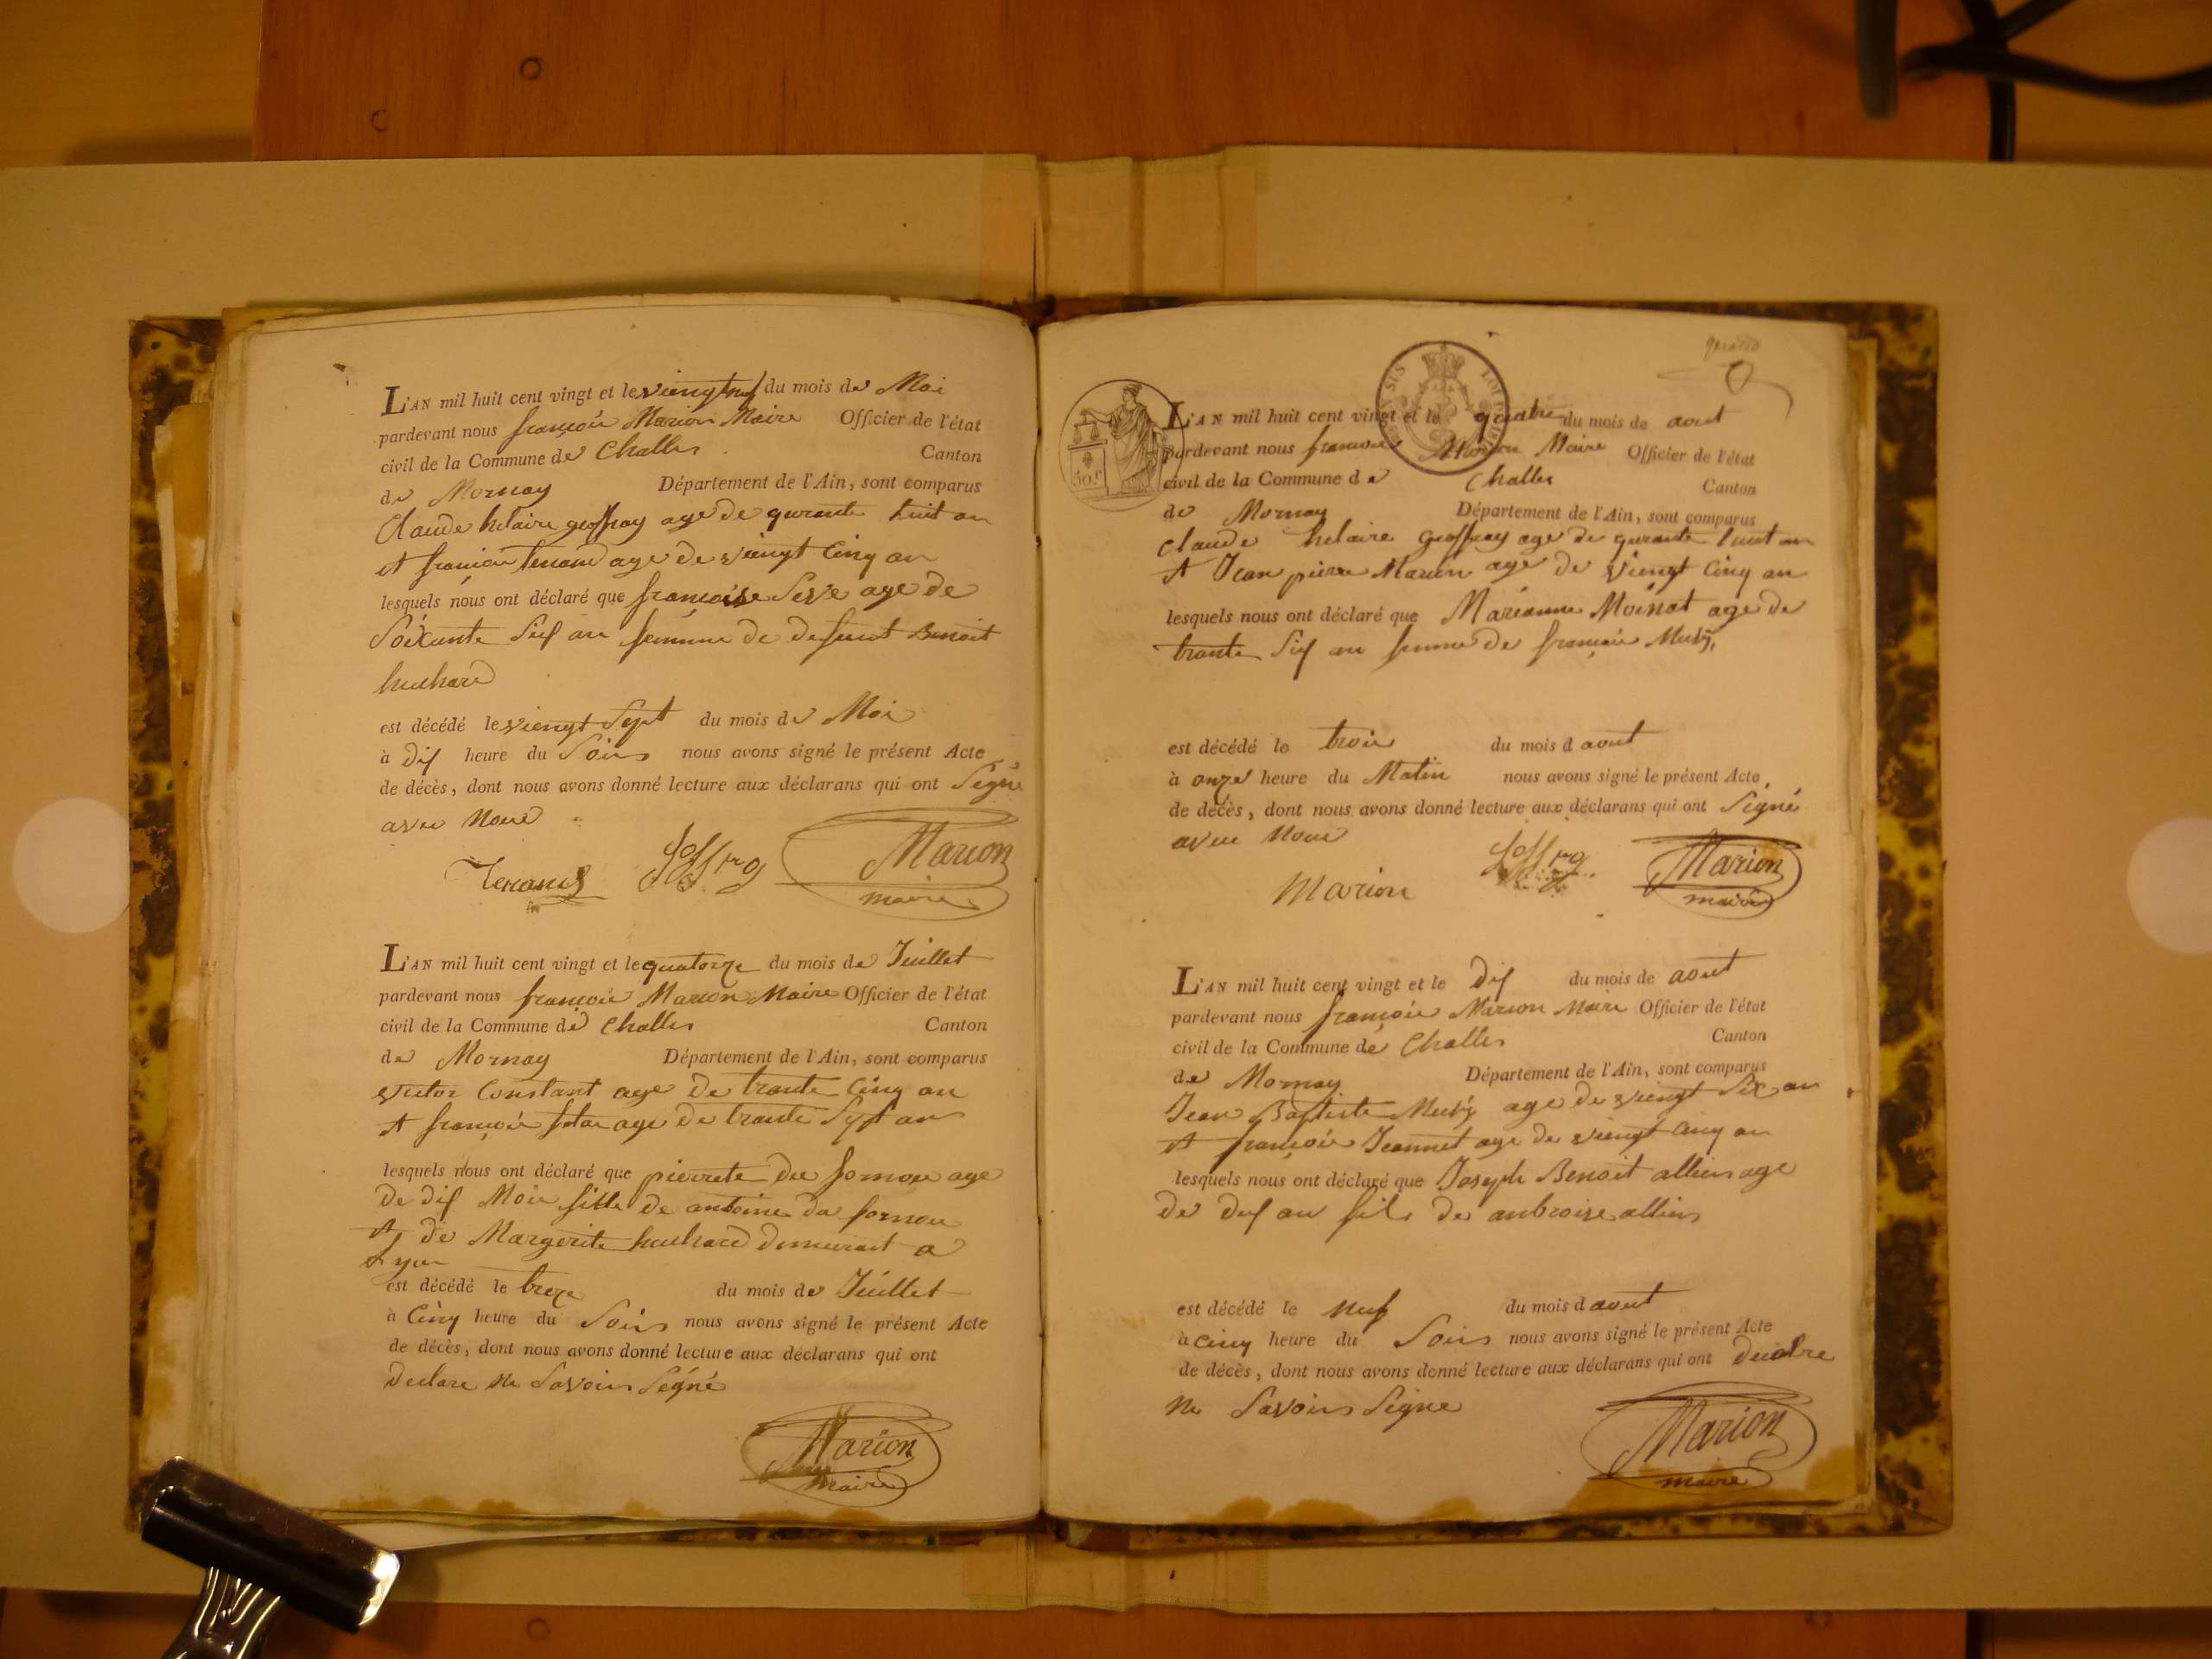 L'AN mil huit cent vingt et le viengtneuf du mois de Mai
pardevant nous françois Marion Maire Officier de l'état
civil de la Commune de Challes Canton
de Mornay Département de l'Ain, sont comparus
Claude helaire geoffray age de qurante huit an
et françois tenand age de viengt Cinq an
lesquels nous ont déclaré que francoise Seve age de
Soixante an femme de defeunt Benoit
huchard
est décédé le viengt Sept du mois de Mai
à dix heure du Soirs nous avons signé le présent Acte
de décès, dont nous avons donné lecture aux déclarans qui ont Signé
avec Nous
Tenand Marion
maire
L'AN mil huit cent vingt et le quatorze du mois de Juillet
pardevant nous françois Marion Maire Officier de l'état
civil de la Commune de Challes Canton
de Mornay Département de l'Ain, sont comparus
victor Constant age de trante Cinq an
et françois age de trante Sept an
lesquels nous ont déclaré que pierrete du fornou age
de dix Mois fille de antoine du fornou
et de Margerite huchard demeurant a
Lyon
est décédé le treze du mois de Juillet
à Cinq heure du Soirs nous avons signé le présent Acte
de décès, dont nous avons donné lecture aux déclarans qui ont
declare ne Savoirs Signé
Marion
maire
L'AN mil huit cent vingt et le quatre du mois de aout
pardevant nous francois Marion Maire Officier de l'état
civil de la Commune de Challes Canton
de Mornay Département de l'Ain, sont comparus
50 c
claude helaire geoffray age de qurante huit an
et Jean pierre Marion age de viengt Cinq an
lesquels nous ont déclaré que Marianne Moinat age de
trante an femme de françois
est décédé le trois du mois d aout
à onze heure du Matin nous avons signé le présent Acte
de décès, dont nous avons donné lecture aux déclarans qui ont Signé
avec Nous
Marion Marion
maire
L'AN mil huit cent vingt et le dix du mois de aout
pardevant nous françois Marion Maire Officier de l'état
civil de la Commune de Challes Canton
de Mornay Département de l'Ain, sont comparus
Jean Baptiste age de viengt Six an
et françois Jeannet age de viengt Cinq an
lesquels nous ont déclaré que Joseph Benoit alliens age
de an fils de anbroise alliens
est décédé le neuf du mois d aout
à cinq heure du Soirs nous avons signé le présent Acte
de décès, dont nous avons donné lecture aux déclarans qui ont
ne Savoirs Signe
Marion
maire